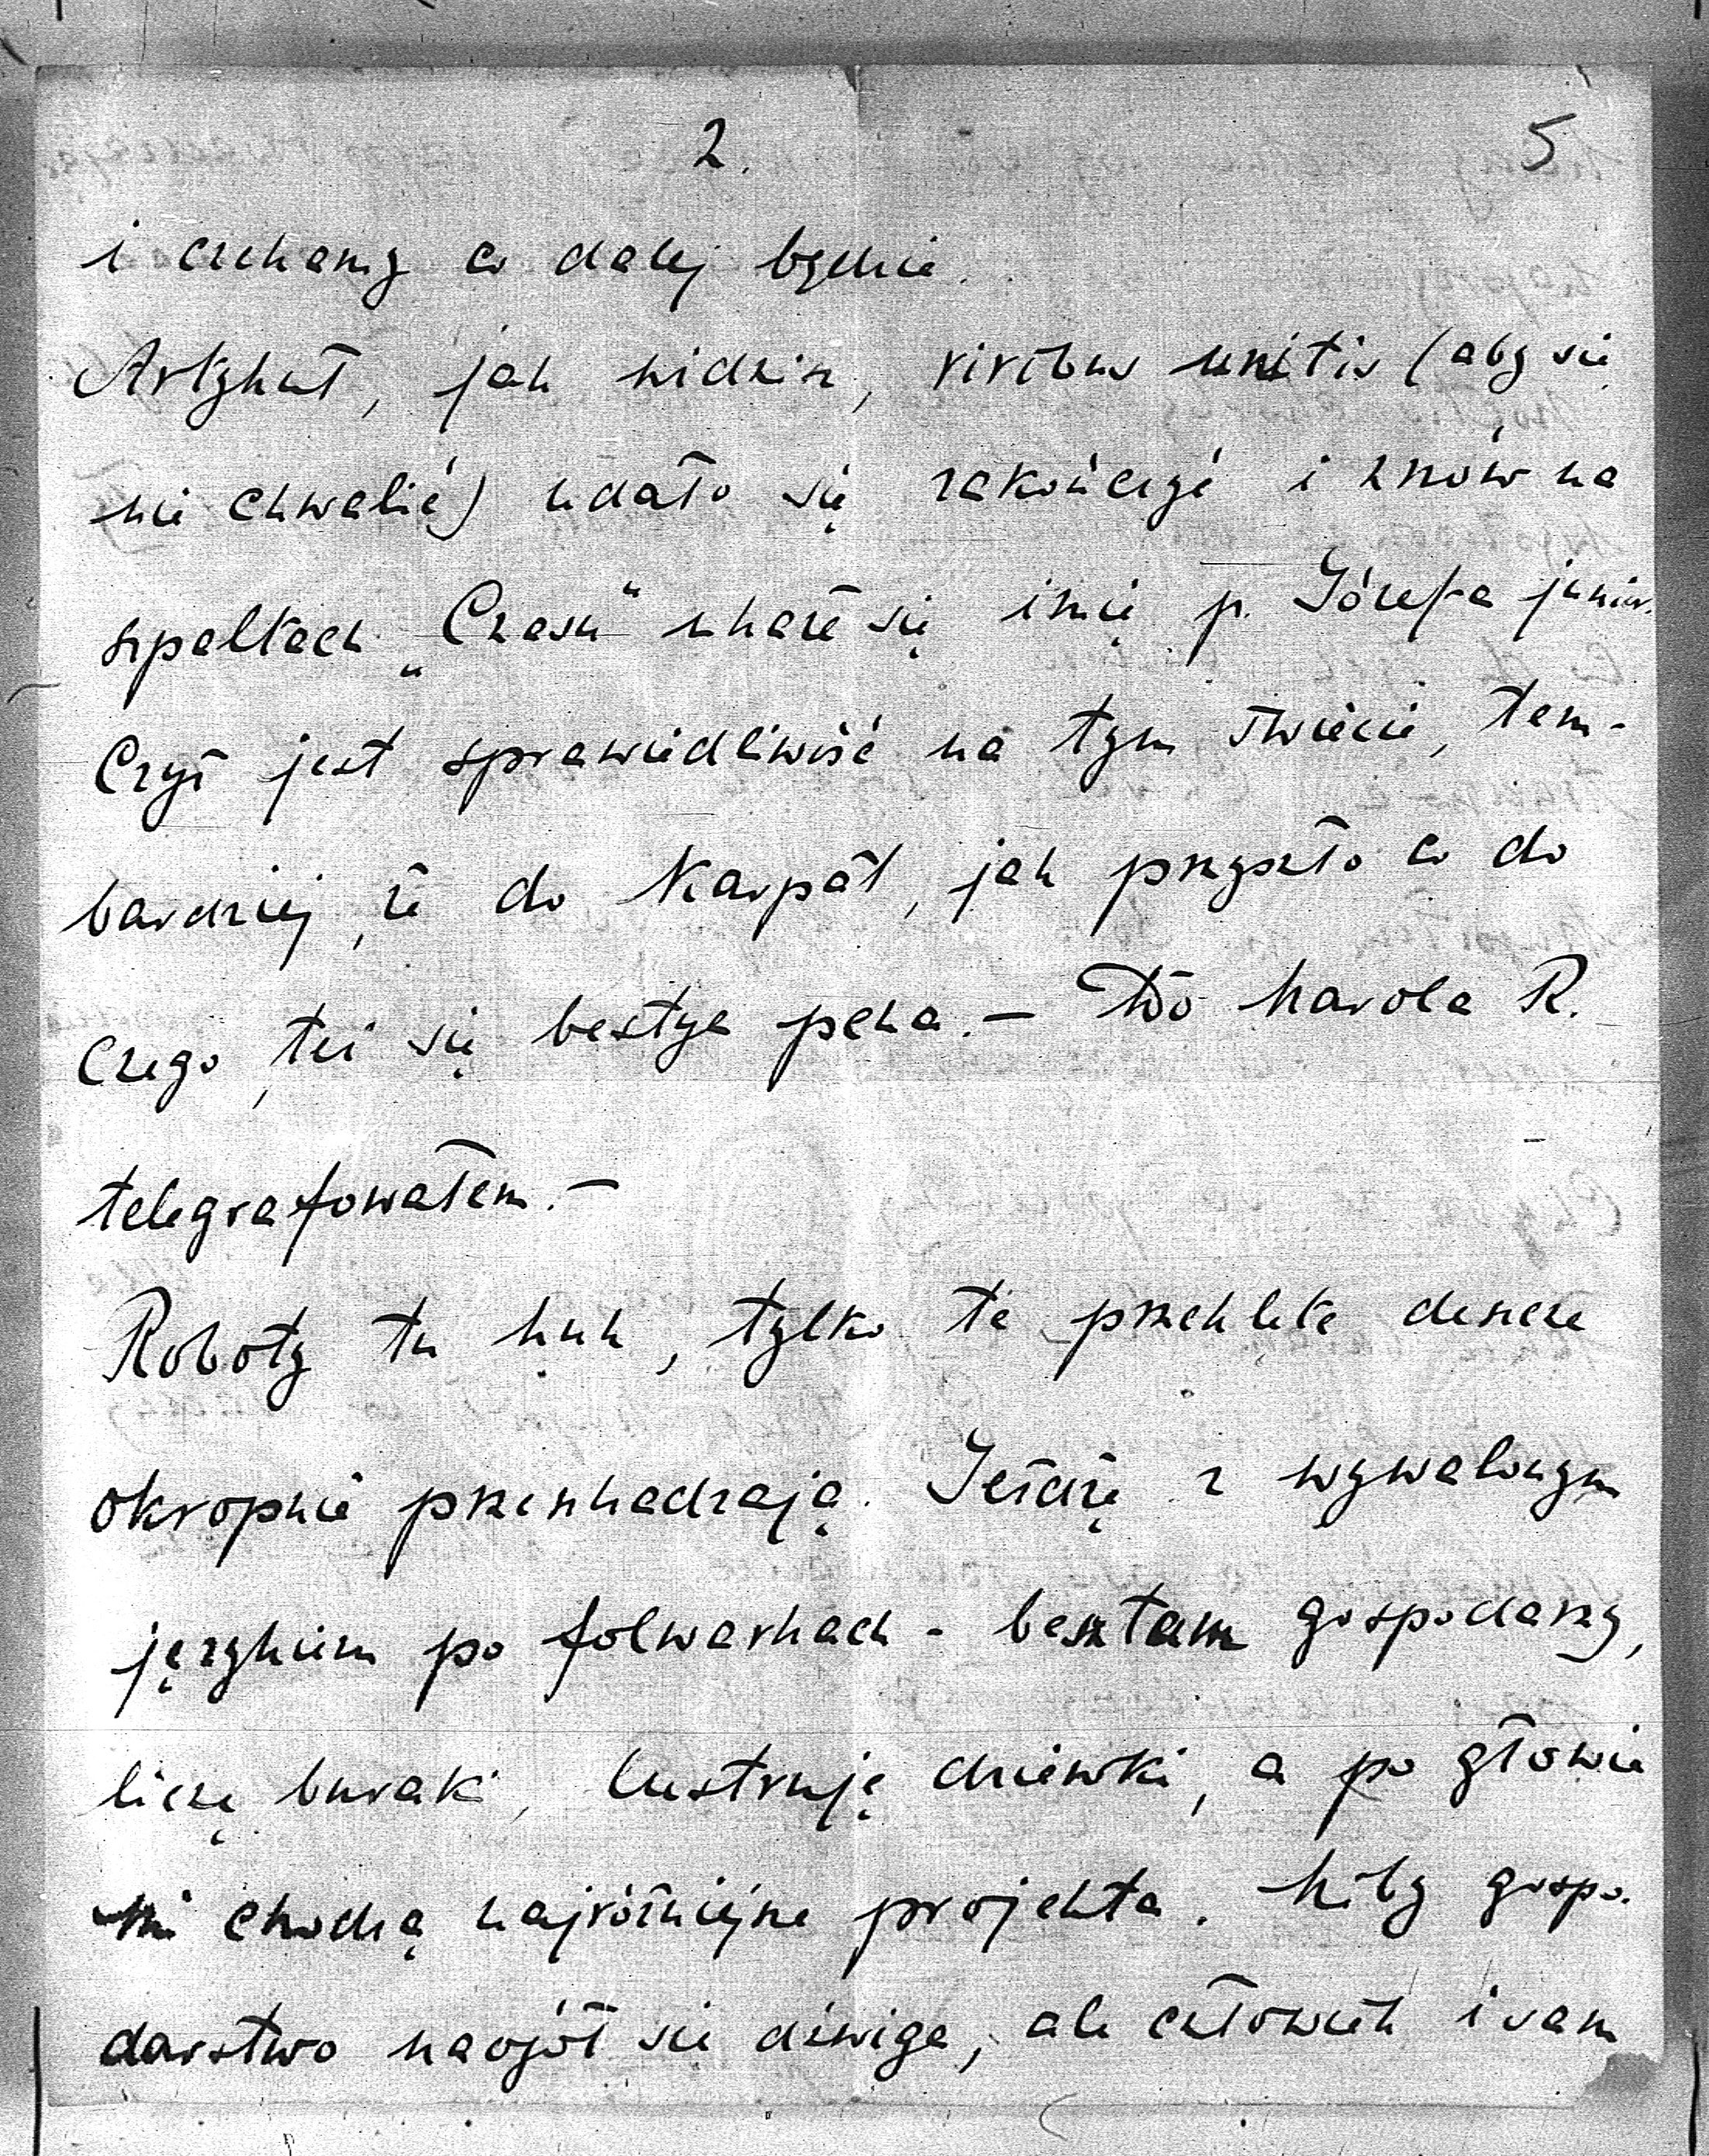 2. 5
i czekamy co dalej będzie.
Artykuł, jak widzisz, viribus unitis (aby się
nie chwalić) udało się zakończyć i znów na
szpaltach „Czasu" ukaże się imię p. Józefa junior.
Czyż jest sprawiedliwość na tym świecie, tem-
bardziej, że do Karpat, jak przyszło co do
czego, też się bestya pcha. – Do Karola R.
telegrafowałem. –
Roboty tu huk, tylko te przeklęte deszcze
okropnie przeszkadzają. Jeżdżę z wywalonym
językiem po folwarkach - besztam gospodarzy,
liczę buraki, lustruję dziewki, a po głowie
mi chodzą najróżniejsze projekta. Niby gospo-
darstwo naogół się dźwiga, ale człowiek i sam